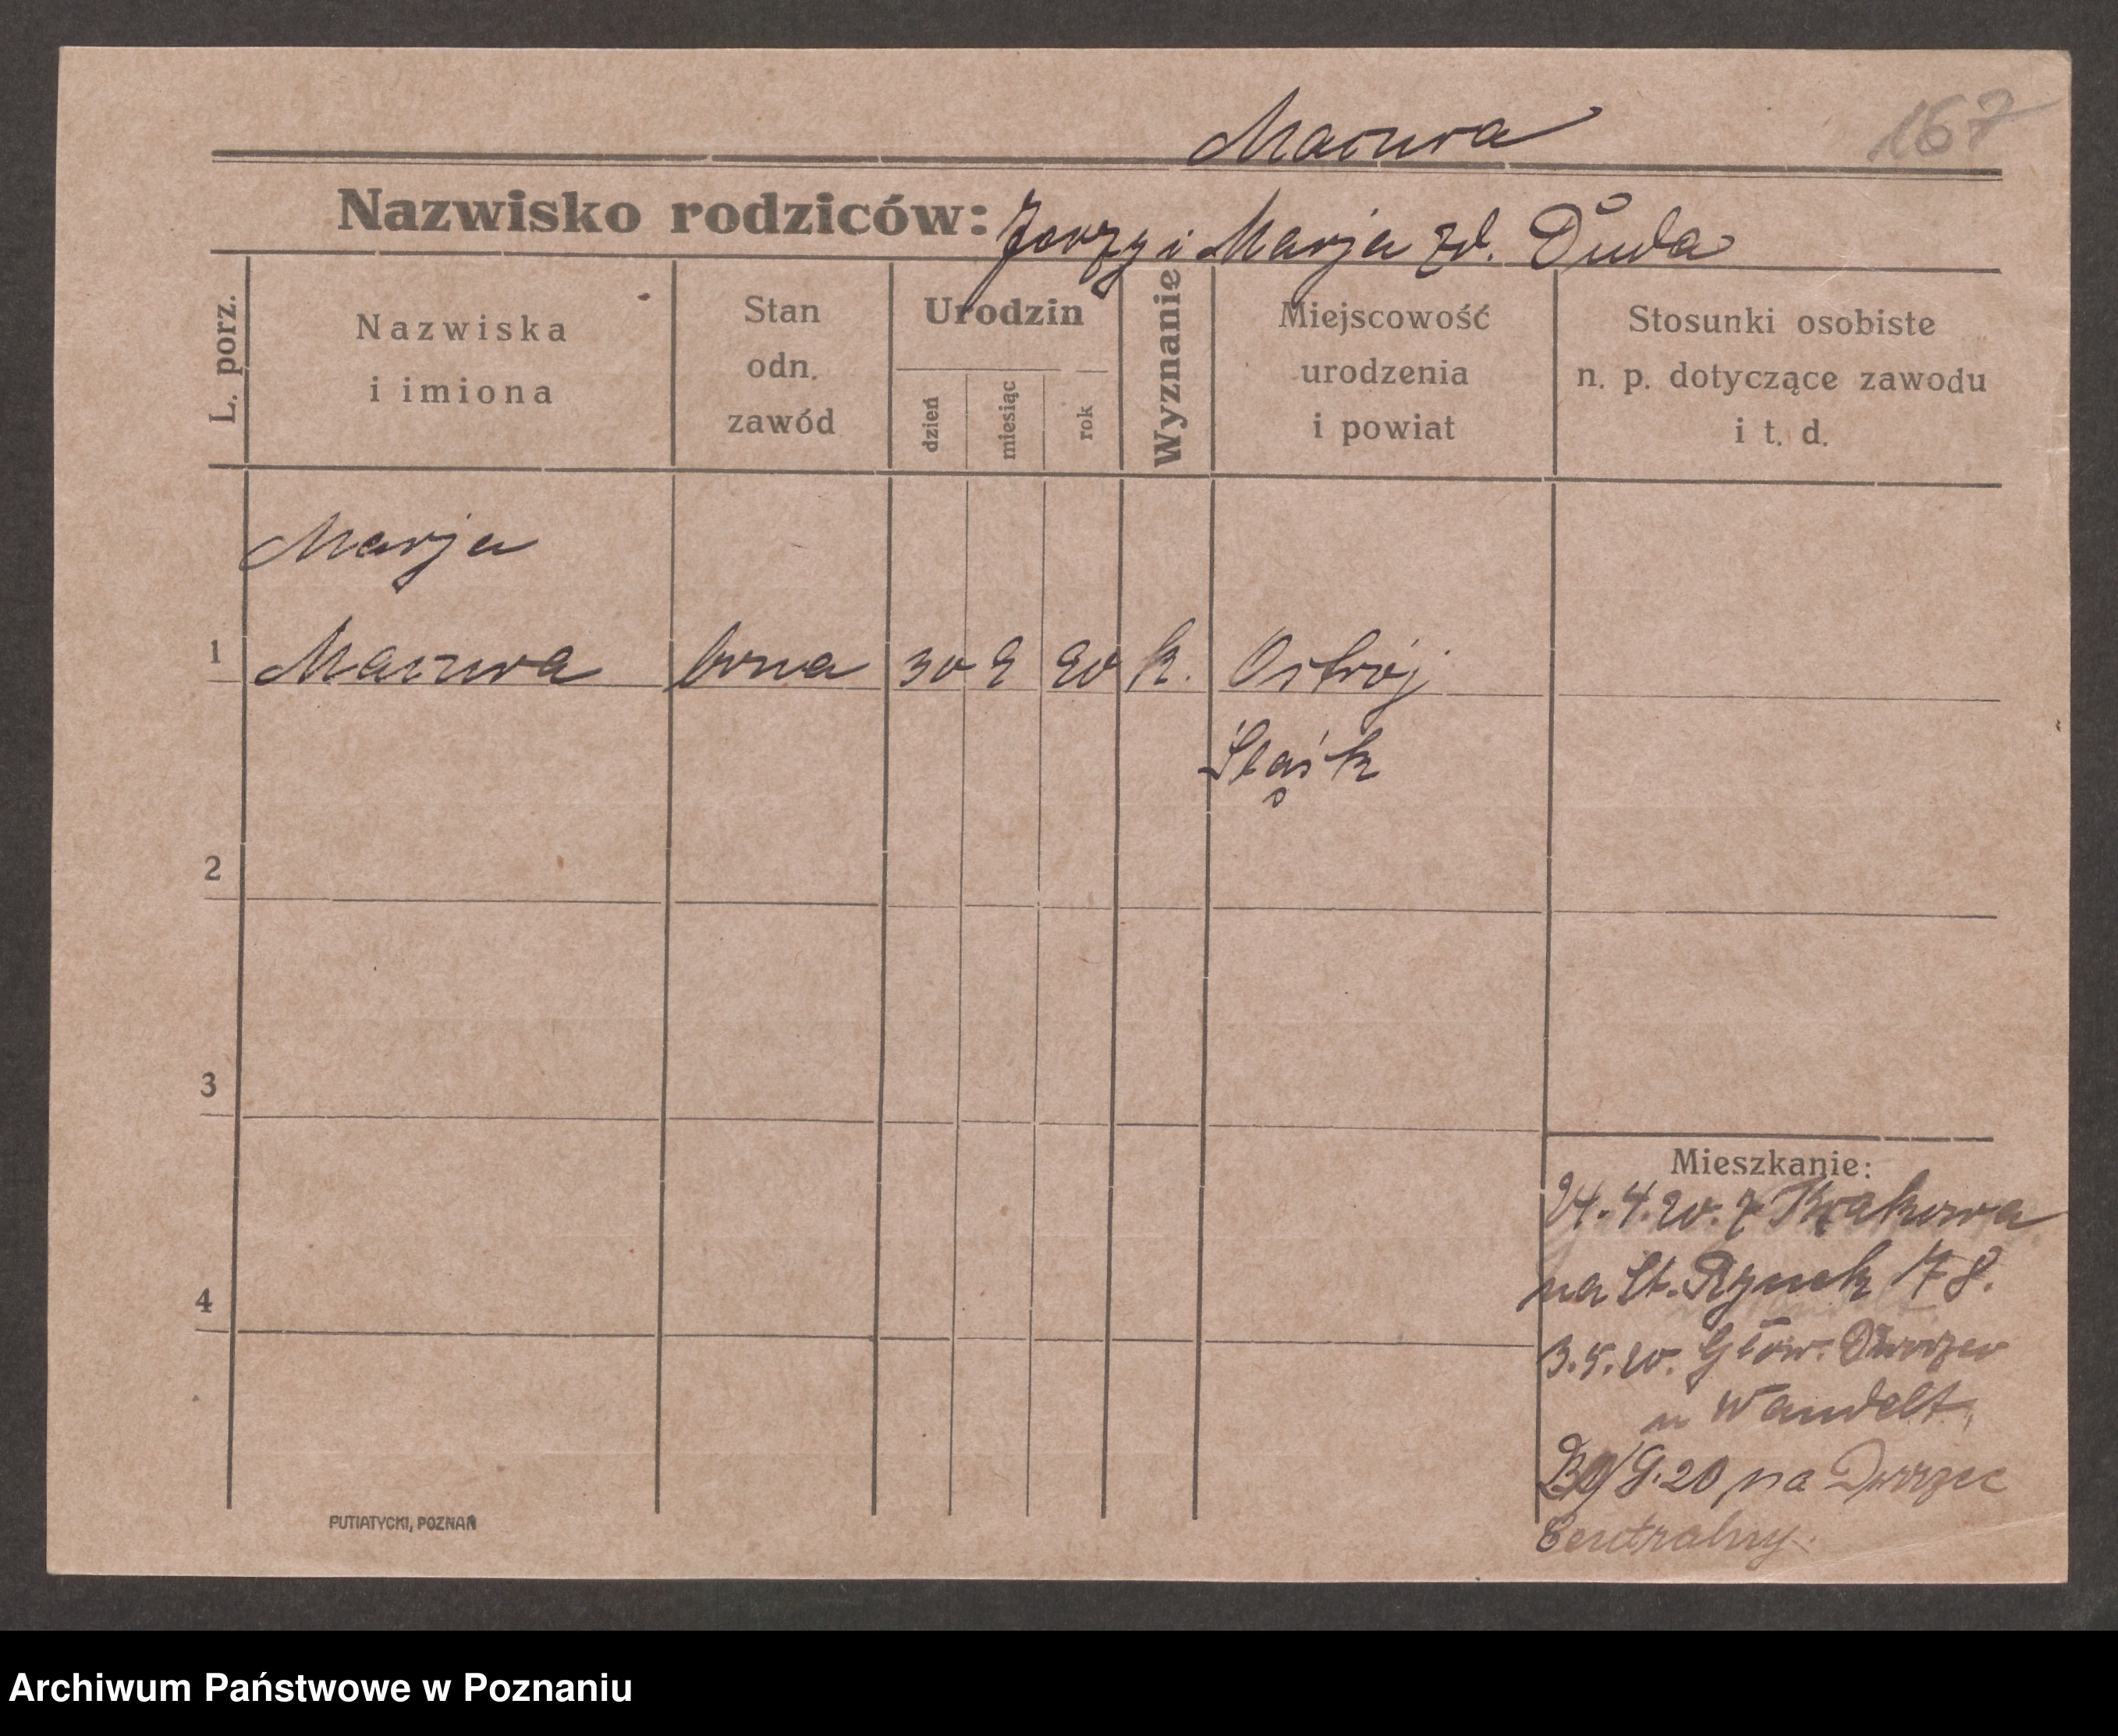 Macura
167
Nazwisko rodziców: Jerzy i Marja zd. Duda
L. porz.
Nazwiska
i imiona
Stan
odn.
zawód
Urodzin
dzień
miesiąc
rok
Wyznanie
Miejscowość
urodzenia
i powiat
Stosunki osobiste
n. p. dotyczące zawodu
i t. d.
Marja
1 Macura 30 20 k.
Śląsk
2
3
4
Mieszkanie:
24.4.20. z Krakowa
na St. Rynek
3.5.20. Głów. Dworzec
u Wandelt.
20 na Dworzec
Centralny.
PUTIATYCKI, POZNAŃ
Archiwum Państwowe w Poznaniu